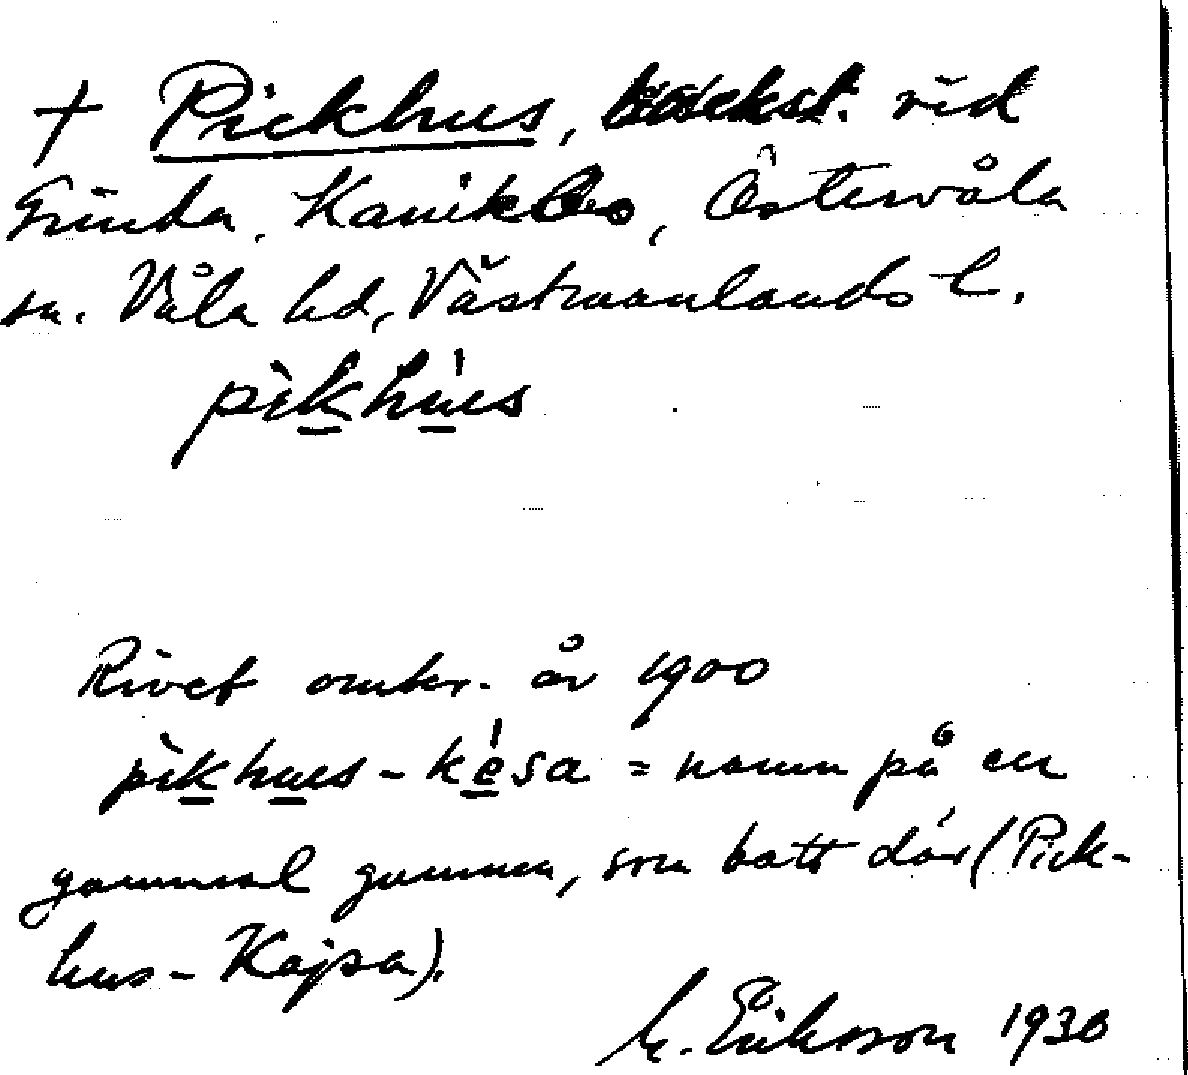 † Pickhus, vid
Grinda, Kanikbo, Östervåla
sn. Våla hd, Västmanlands l.
pìkhús
Rivet omkr. år 1900
pìkhus-késa = namn på en
gammal gumma, som bott där (Pick-
hus-Kajsa).
M. Eriksson 1930